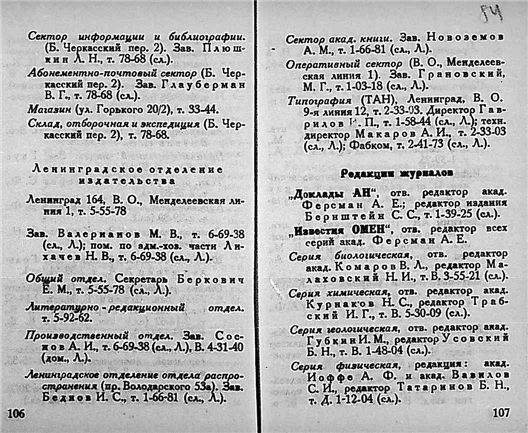 Сектор информации и библиографии.
(Б. Черкасский пер. 2). Зав. Плюш-
кин Л. Н., т. 78-68 (сл.).
Абонементно-почтовый сектор (Б. Чер-
касский пер. 2). Зав. Глауберман
В. Г., т. 78-68 (сл.).
Магазин (ул. Горького 20/2), т. 33-44.
Склад, отборочная и экспедиция (Б. Чер-
касский пер. 2), т. 78-68.
Ленинградское отделение
издательства
Ленинград 164, В. О., Менделеевская ли-
ния 1, т. 5-55-78
Зав. Валерианов М. В., т. 6-69-38
(сл., Л.); пом. по адм.-хоз. части Ли-
хачев Н. В., т. 6-69-38 (сл., Л.).
Общий отдел. Секретарь Беркович
Е. М., т. 5-55-78 (сл., Л.).
Литературно-редакционный отдел.
т. 5-92-62.
Производственный отдел. Зав. Сос-
нов А. И., т. 6-69-38 (сл., Л.), В. 4-31-40
(дом., Л.).
Ленинградское отделение отдела распро-
странения (пр. Володарского 53а). Зав.
Беднов И. С., т. 1-66-81 (сл., Л.).
106
54
Сектор акад. книги. Зав. Новоземов
А. М., т. 1-66-81 (сл., Л.).
Оперативный сектор (В. О., Менделеев-
ская линия 1). Зав. Грановский,
М. Г., т. 1-03-18 (сл., Л.).
Типография (ТАН), Ленинград, В. О.
9-я линия 12, т. 2-33-03. Директор Гав-
рилов П., т. 1-58-44 (сл., Л.); техн.
директор Макаров А. И., т. 2-33-03
(сл., Л.); Фабком, т. 2-41-73 (сл., Л.).
Редакции журналов
„Доклады АН", отв. редактор акад.
Ферсман А. Е.; редактор издания
Бернштейн С. С., т. 1-39-25 (сл.).
„Известия ОМЕН", отв. редактор всех
серий акад. Ферсман А. Е.
Серия биологическая, отв. редактор
акад. Комаров В. Л., редактор Ма-
лаховский Н. И., т. В. 3-55-21 (сл.).
Серия химическая, отв. редактор акад.
Курнаков Н. С., редактор Траб-
ский И. Г., т. В. 5-30-09 (сл.).
Серия геологическая, отв. редактор акад.
Губкин И. М., редактор Усовский
Б. Н., т. В. 1-48-04 (сл.).
Серия физическая, редакция: акад.
Иоффе А. Ф. и акад. Вавилов
С. И., редактор Татаринов Б. Н.,
т. Д. 1-12-04 (сл.).
107